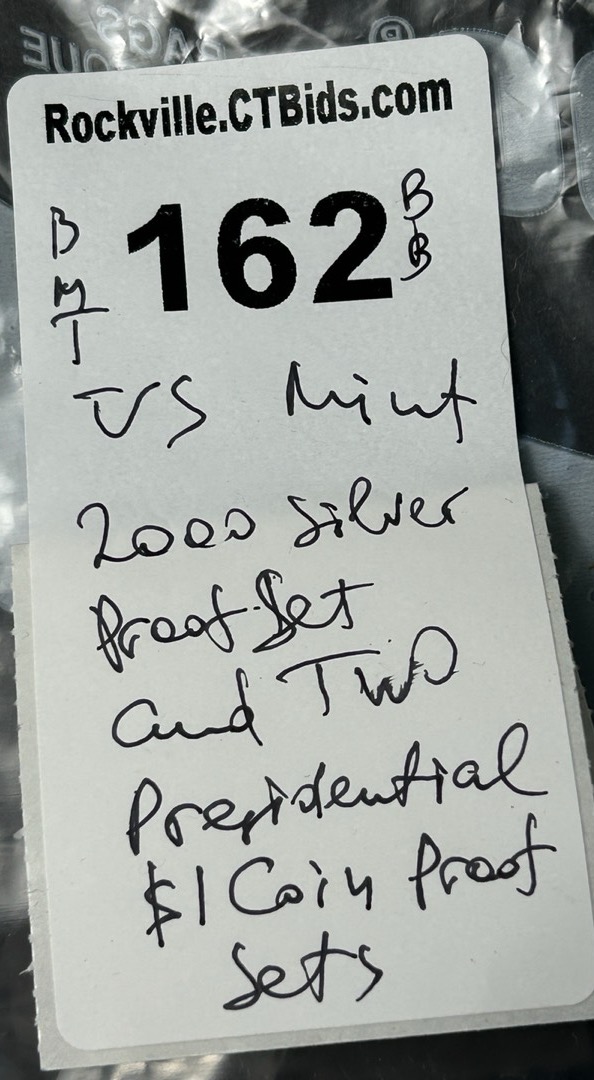 Rockville.CTBids.com
B
M
T
162
B
B
US Mint
2000 Silver
Proof Set
and Two
Presidential
$1 Coin Proof
Sets